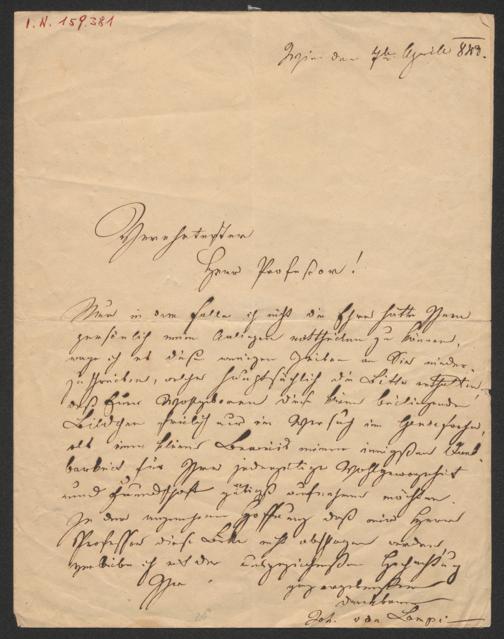 I. N. 159.381
Wien den 7t. April 843.
Verehrtester
Herr Professor!
Nur in dem Falle ich nicht die Ehre hätte Ihnen
persönlich mein Anliegen mittheilen zu können,
wage ich es diese wenigen Zeilen an Sie nieder-
zuschreiben, welche hauptsächlich die Bitte enthalten
daß Euer Wohlgeboren dies kleine beiliegende
Bildchen freilich nur ein Versuch im
als einen kleinen Beweis meiner innigsten Dank-
barkeit für Ihre jederzeitige Wohlgewogenheit
und Freundschaft gütigst aufnehmen möchten.
In der angenehmen Hoffnung daß mir Herr
Professor diese Bitte nicht abschlagen werden
verbleibe ich mit der ausgezeichnetsten Hochachtung
Ihr
ganz ergebenster
dankbarer
Joh. von Lampi